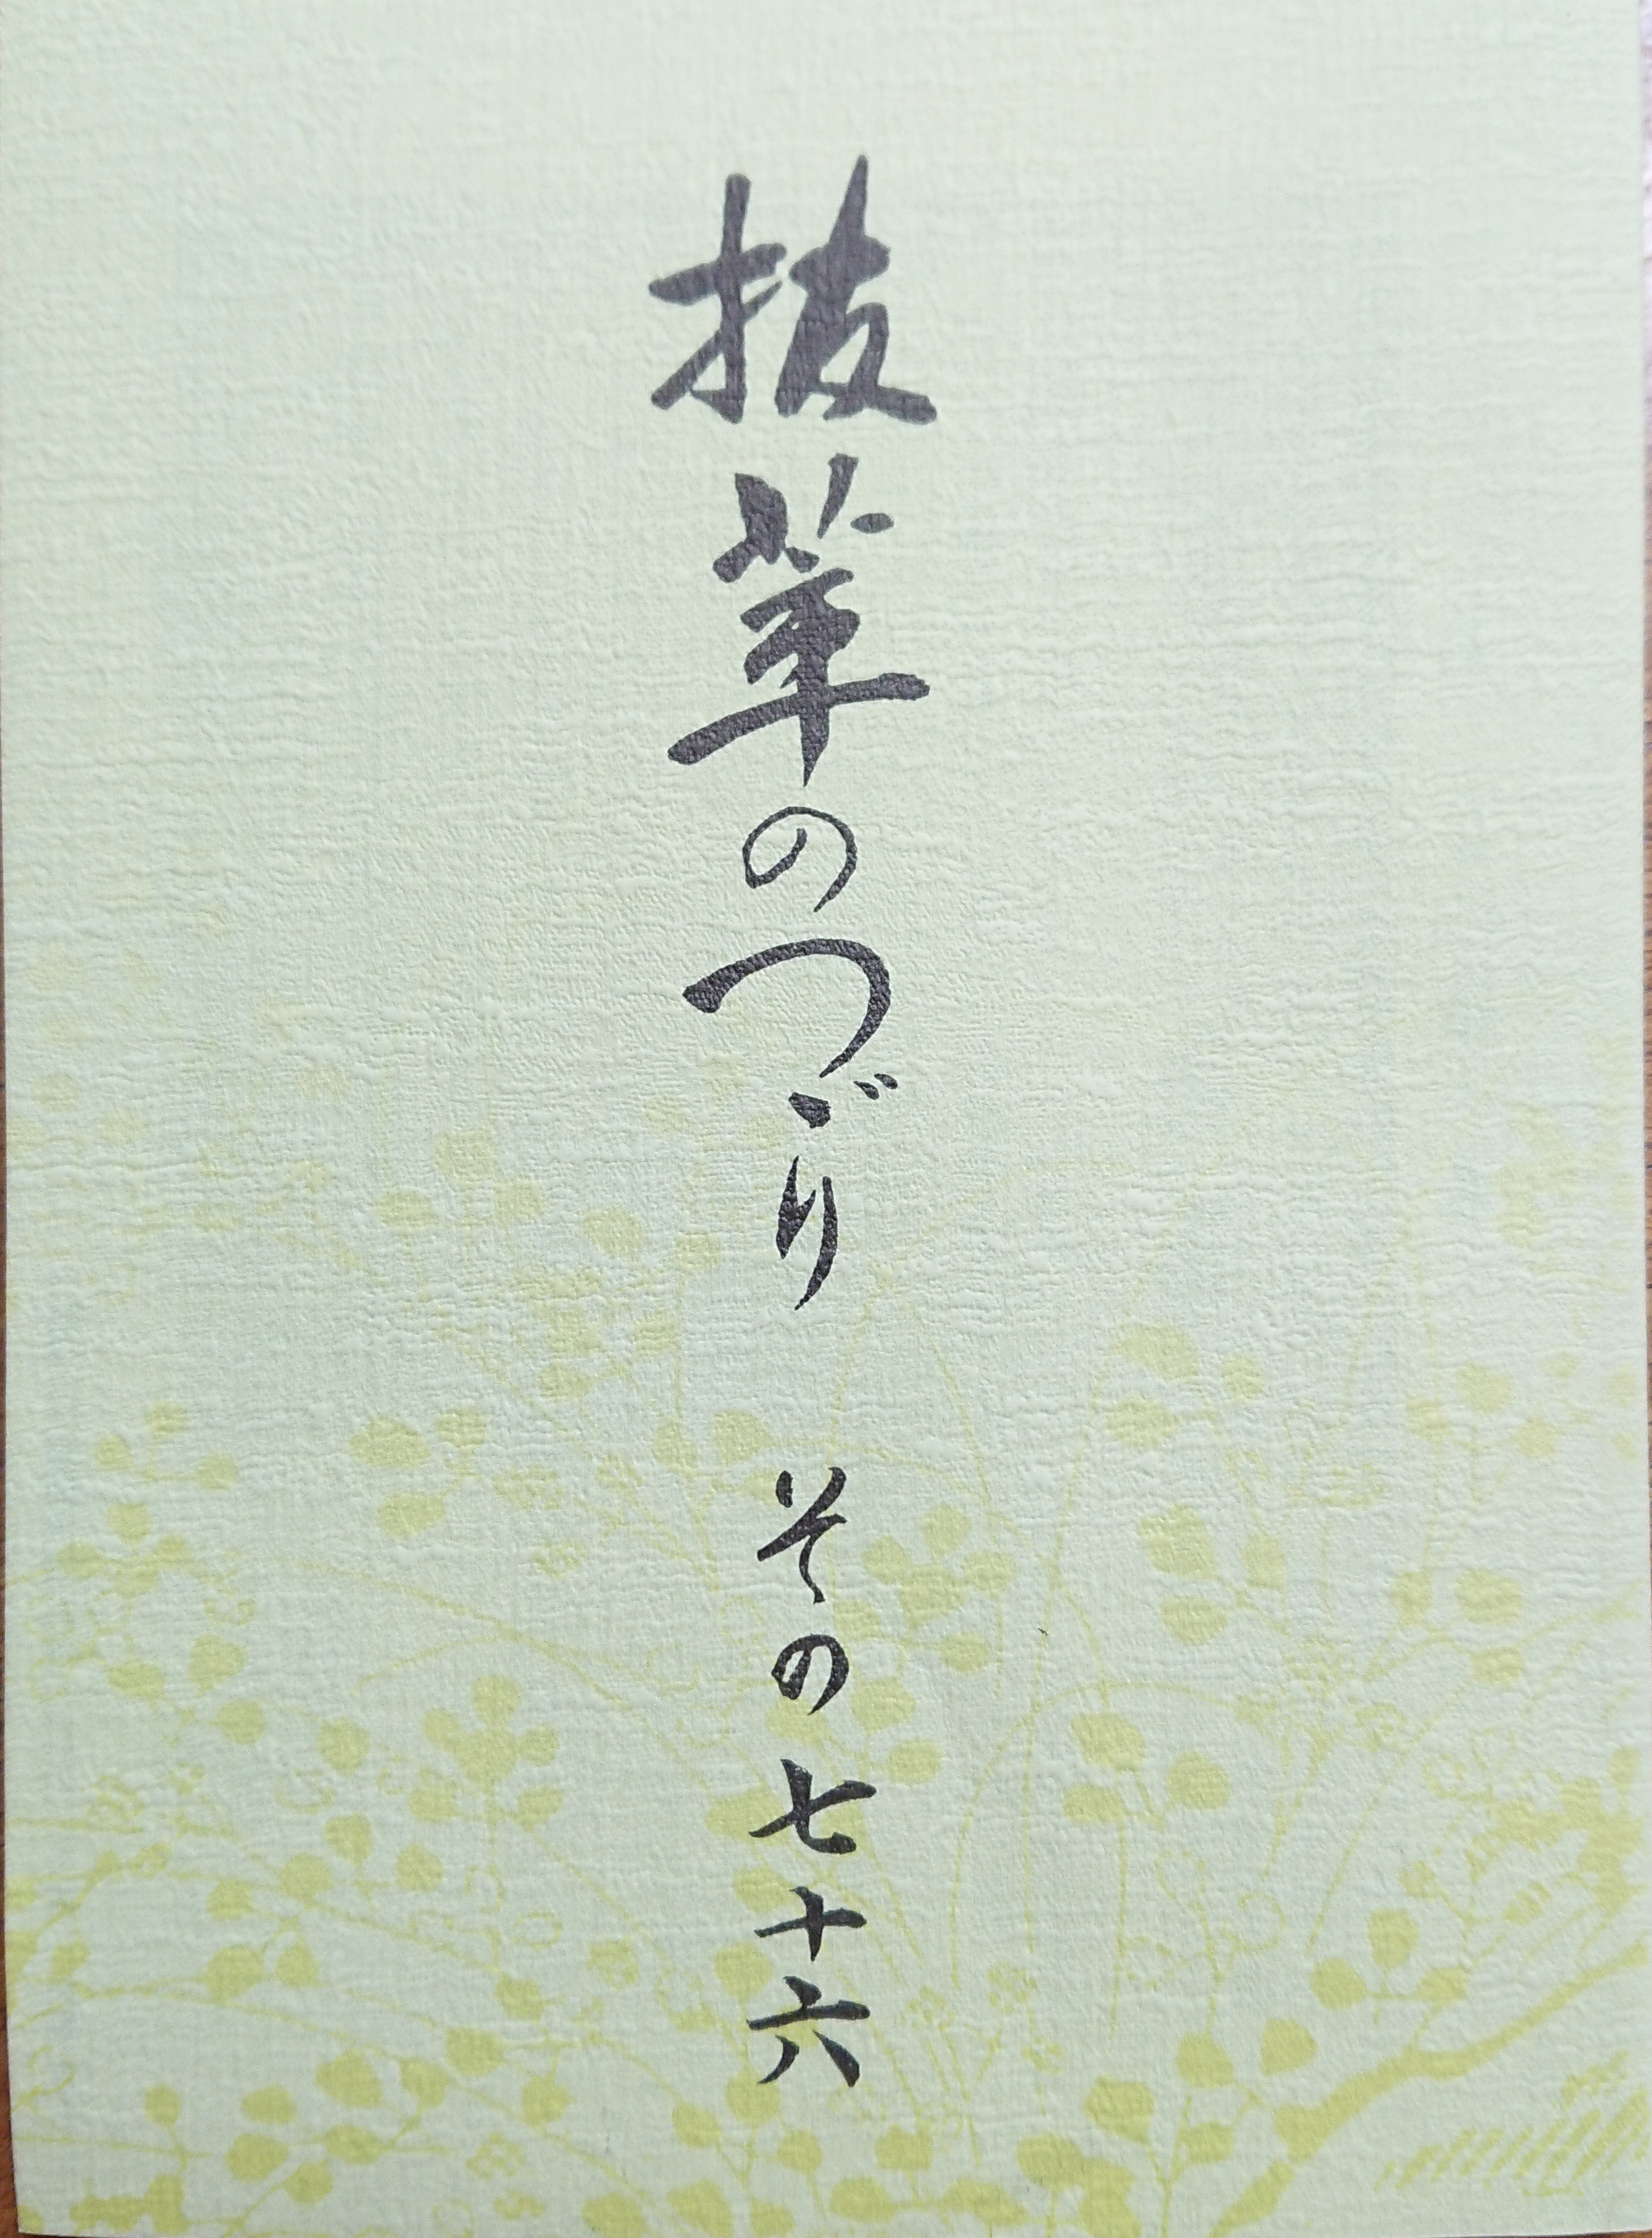 抜萃のつゞり その七十六